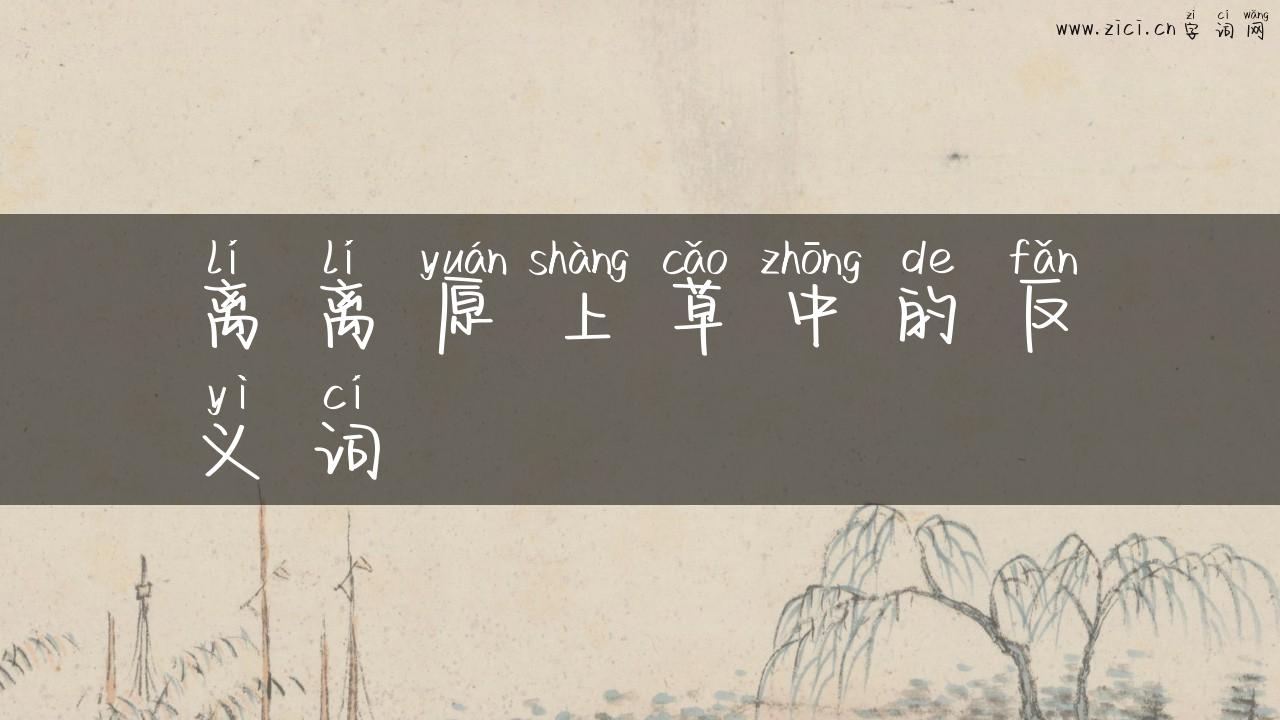 zì cí wǎng
www.zici.cn 字词网
lí lí yuán shàng cǎo zhōng de fǎn
离离原上草中的反
yì cí
义词